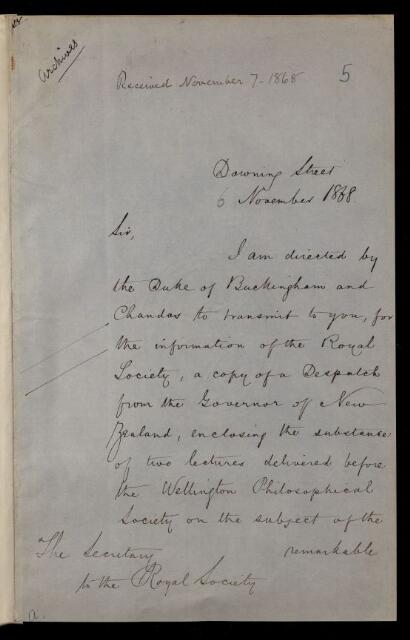 Archives
Received November 7 - 1868
5
Downing Street
6 November 1868
Sir,
I am directed by
the Duke of Buckingham and
Chandos to transmit to you, for
the information of the Royal
Society, a copy of a Despatch
from the Governor of New
Zealand, enclosing the substance
of two lectures delivered before
the Wellington Philosophical
Society on the subject of the
remarkable
The Secretary
to the Royal Society
a.